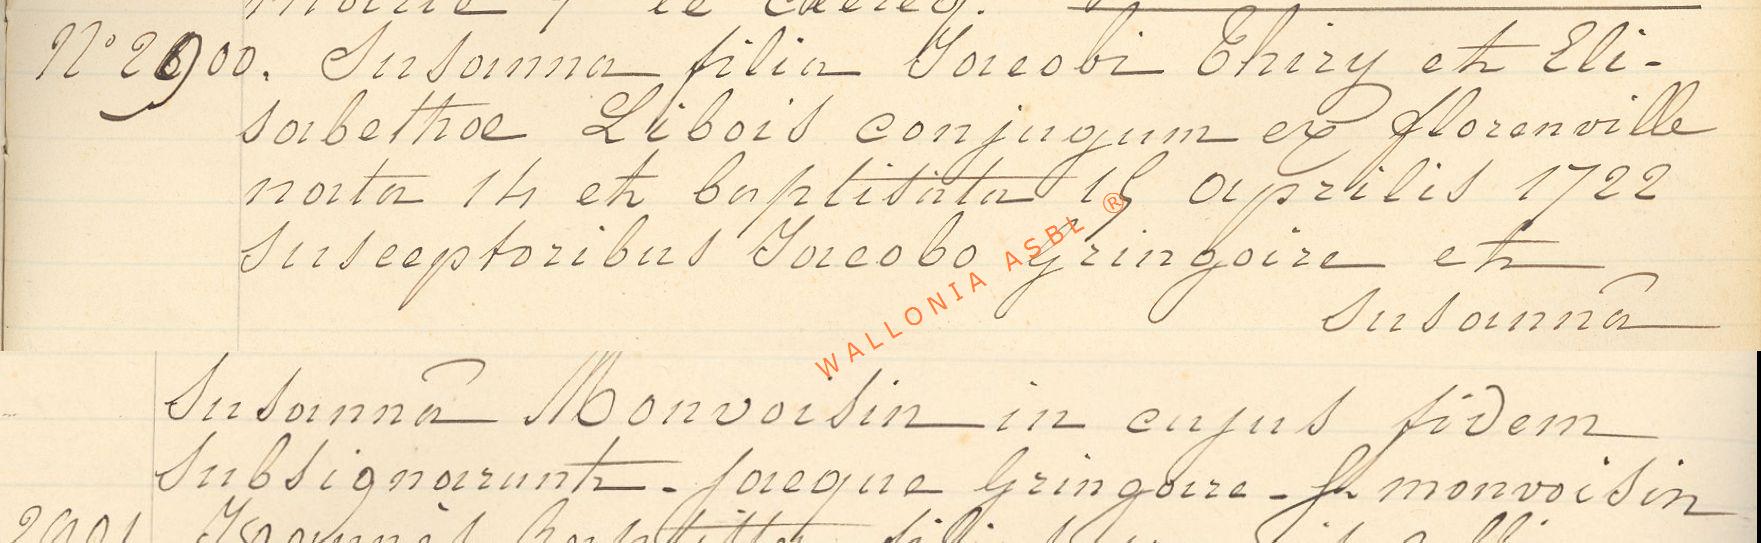 N° 2900. Susanna filia Jacobi Thiry et Eli-
sabethae Libois conjugum ex florenville
nata 14 et baptisata 15 aprilis 1722
susceptoribus Jacobo gringoire et
Susannâ
Susannâ Monvoisin in cujus fidem
subsignarunt - jacque Gringoire - S. monvoisin
2901
WALLONIA ASBL ®